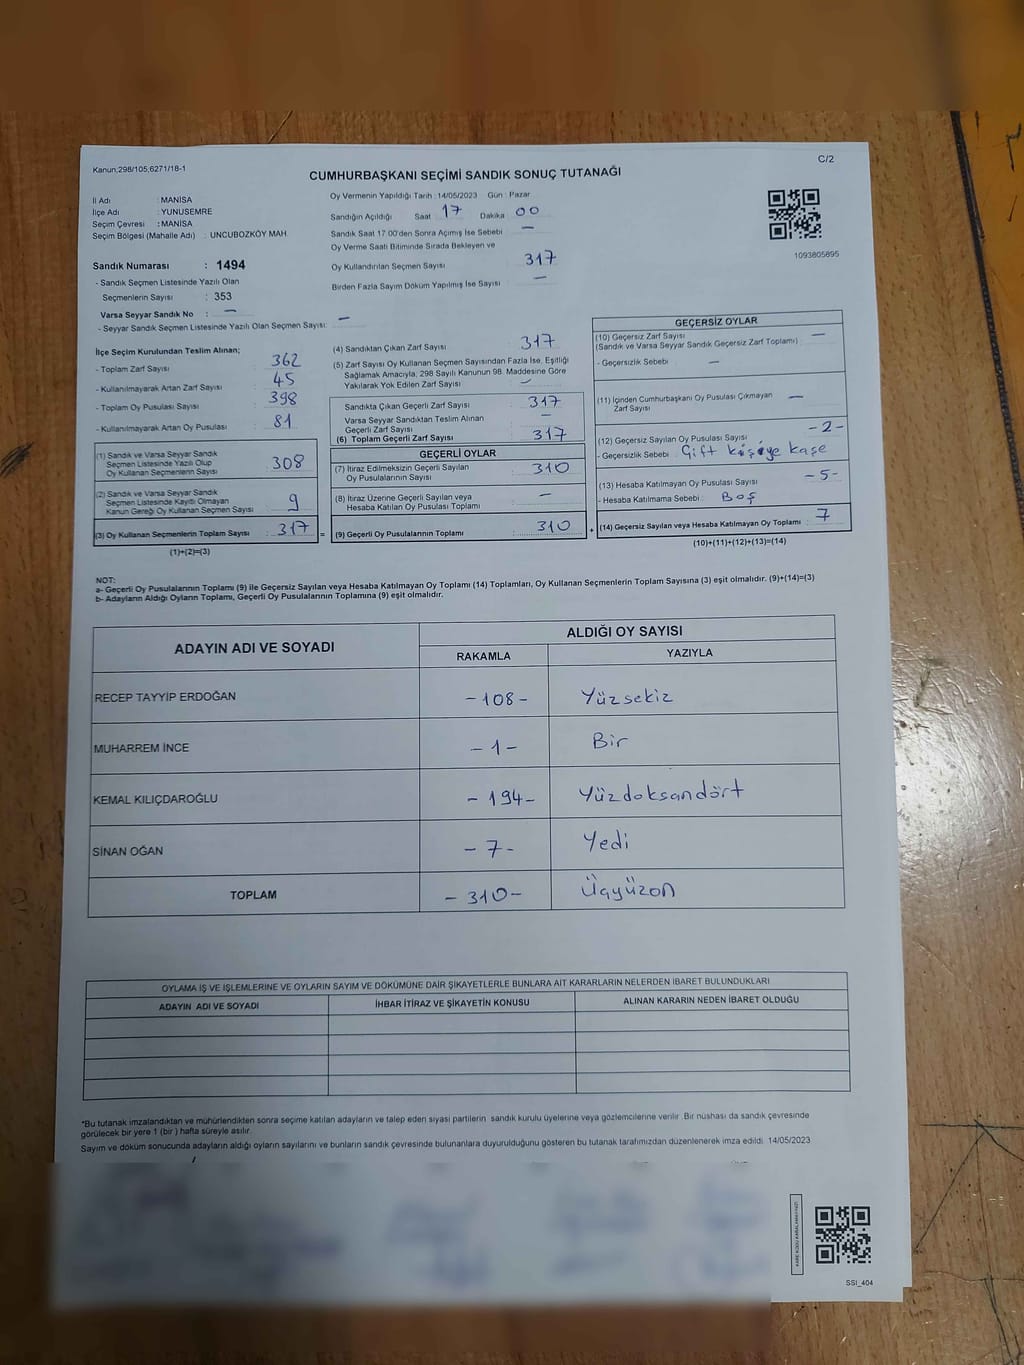 Kanun;298/105;6271/18-1
C/2
CUMHURBAŞKANI SEÇİMİ SANDIK SONUÇ TUTANAĞI
İl Adı : MANİSA
İlçe Adı : YUNUSEMRE
Seçim Çevresi : MANİSA
Seçim Bölgesi (Mahalle Adı) : UNCUBOZKÖY MAH.
Sandık Numarası : 1494
- Sandık Seçmen Listesinde Yazılı Olan
Seçmenlerin Sayısı : 353
Varsa Seyyar Sandık No : –
- Seyyar Sandık Seçmen Listesinde Yazılı Olan Seçmen Sayısı: –
Oy Vermenin Yapıldığı Tarih :14/05/2023 Gün : Pazar
Sandığın Açıldığı Saat 17 Dakika 00
Sandık Saat 17:00'den Sonra Açılmış İse Sebebi –
Oy Verme Saati Bitiminde Sırada Bekleyen ve
Oy Kullandırılan Seçmen Sayısı : 317
Birden Fazla Sayım Döküm Yapılmış İse Sayısı : –
1093805895
İlçe Seçim Kurulundan Teslim Alınan;
- Toplam Zarf Sayısı : 362
- Kullanılmayarak Artan Zarf Sayısı : 45
- Toplam Oy Pusulası Sayısı : 398
- Kullanılmayarak Artan Oy Pusulası : 81
(1) Sandık ve Varsa Seyyar Sandık
Seçmen Listesinde Yazılı Olup
Oy Kullanan Seçmenlerin Sayısı : 308
(2) Sandık ve Varsa Seyyar Sandık
Seçmen Listesinde Kayıtlı Olmayan
Kanun Gereği Oy Kullanan Seçmen Sayısı : 9
(3) Oy Kullanan Seçmenlerin Toplam Sayısı : 317 =
(1)+(2)=(3)
(4) Sandıktan Çıkan Zarf Sayısı : 317
(5) Zarf Sayısı Oy Kullanan Seçmen Sayısından Fazla İse, Eşitliği
Sağlamak Amacıyla, 298 Sayılı Kanunun 98. Maddesine Göre
Yakılarak Yok Edilen Zarf Sayısı : –
Sandıkta Çıkan Geçerli Zarf Sayısı : 317
Varsa Seyyar Sandıktan Teslim Alınan
Geçerli Zarf Sayısı : –
(6) Toplam Geçerli Zarf Sayısı : 317
GEÇERLİ OYLAR
(7) İtiraz Edilmeksizin Geçerli Sayılan
Oy Pusulalarının Sayısı : 310
(8) İtiraz Üzerine Geçerli Sayılan veya
Hesaba Katılan Oy Pusulası Toplamı : –
(9) Geçerli Oy Pusulalarının Toplamı : 310 +
GEÇERSİZ OYLAR
(10) Geçersiz Zarf Sayısı : –
(Sandık ve Varsa Seyyar Sandık Geçersiz Zarf Toplamı)
- Geçersizlik Sebebi : –
(11) İçinden Cumhurbaşkanı Oy Pusulası Çıkmayan
Zarf Sayısı : –
(12) Geçersiz Sayılan Oy Pusulası Sayısı : -2-
- Geçersizlik Sebebi : Çift kişiye kaşe
(13) Hesaba Katılmayan Oy Pusulası Sayısı : -5-
- Hesaba Katılmama Sebebi : Boş
(14) Geçersiz Sayılan veya Hesaba Katılmayan Oy Toplamı : 7
(10)+(11)+(12)+(13)=(14)
NOT:
a- Geçerli Oy Pusulalarının Toplamı (9) ile Geçersiz Sayılan veya Hesaba Katılmayan Oy Toplamı (14) Toplamları, Oy Kullanan Seçmenlerin Toplam Sayısına (3) eşit olmalıdır. (9)+(14)=(3)
b- Adayların Aldığı Oyların Toplamı, Geçerli Oy Pusulalarının Toplamına (9) eşit olmalıdır.
ADAYIN ADI VE SOYADI
ALDIĞI OY SAYISI
RAKAMLA YAZIYLA
RECEP TAYYİP ERDOĞAN -108- Yüzsekiz
MUHARREM İNCE -1- Bir
KEMAL KILIÇDAROĞLU -194- Yüzdoksandört
SİNAN OĞAN -7- Yedi
TOPLAM -310- Üçyüzon
OYLAMA İŞ VE İŞLEMLERİNE VE OYLARIN SAYIM VE DÖKÜMÜNE DAİR ŞİKAYETLERLE BUNLARA AİT KARARLARIN NELERDEN İBARET BULUNDUKLARI
ADAYIN ADI VE SOYADI İHBAR İTİRAZ VE ŞİKAYETİN KONUSU ALINAN KARARIN NEDEN İBARET OLDUĞU
*Bu tutanak imzalandıktan ve mühürlendikten sonra seçime katılan adayların ve talep eden siyasi partilerin sandık kurulu üyelerine veya gözlemcilerine verilir. Bir nüshası da sandık çevresinde
görülecek bir yere 1 (bir) hafta süreyle asılır.
Sayım ve döküm sonucunda adayların aldığı oyların sayılarını ve bunların sandık çevresinde bulunanlara duyurulduğunu gösteren bu tutanak tarafımızdan düzenlenerek imza edildi. 14/05/2023
SSI_404